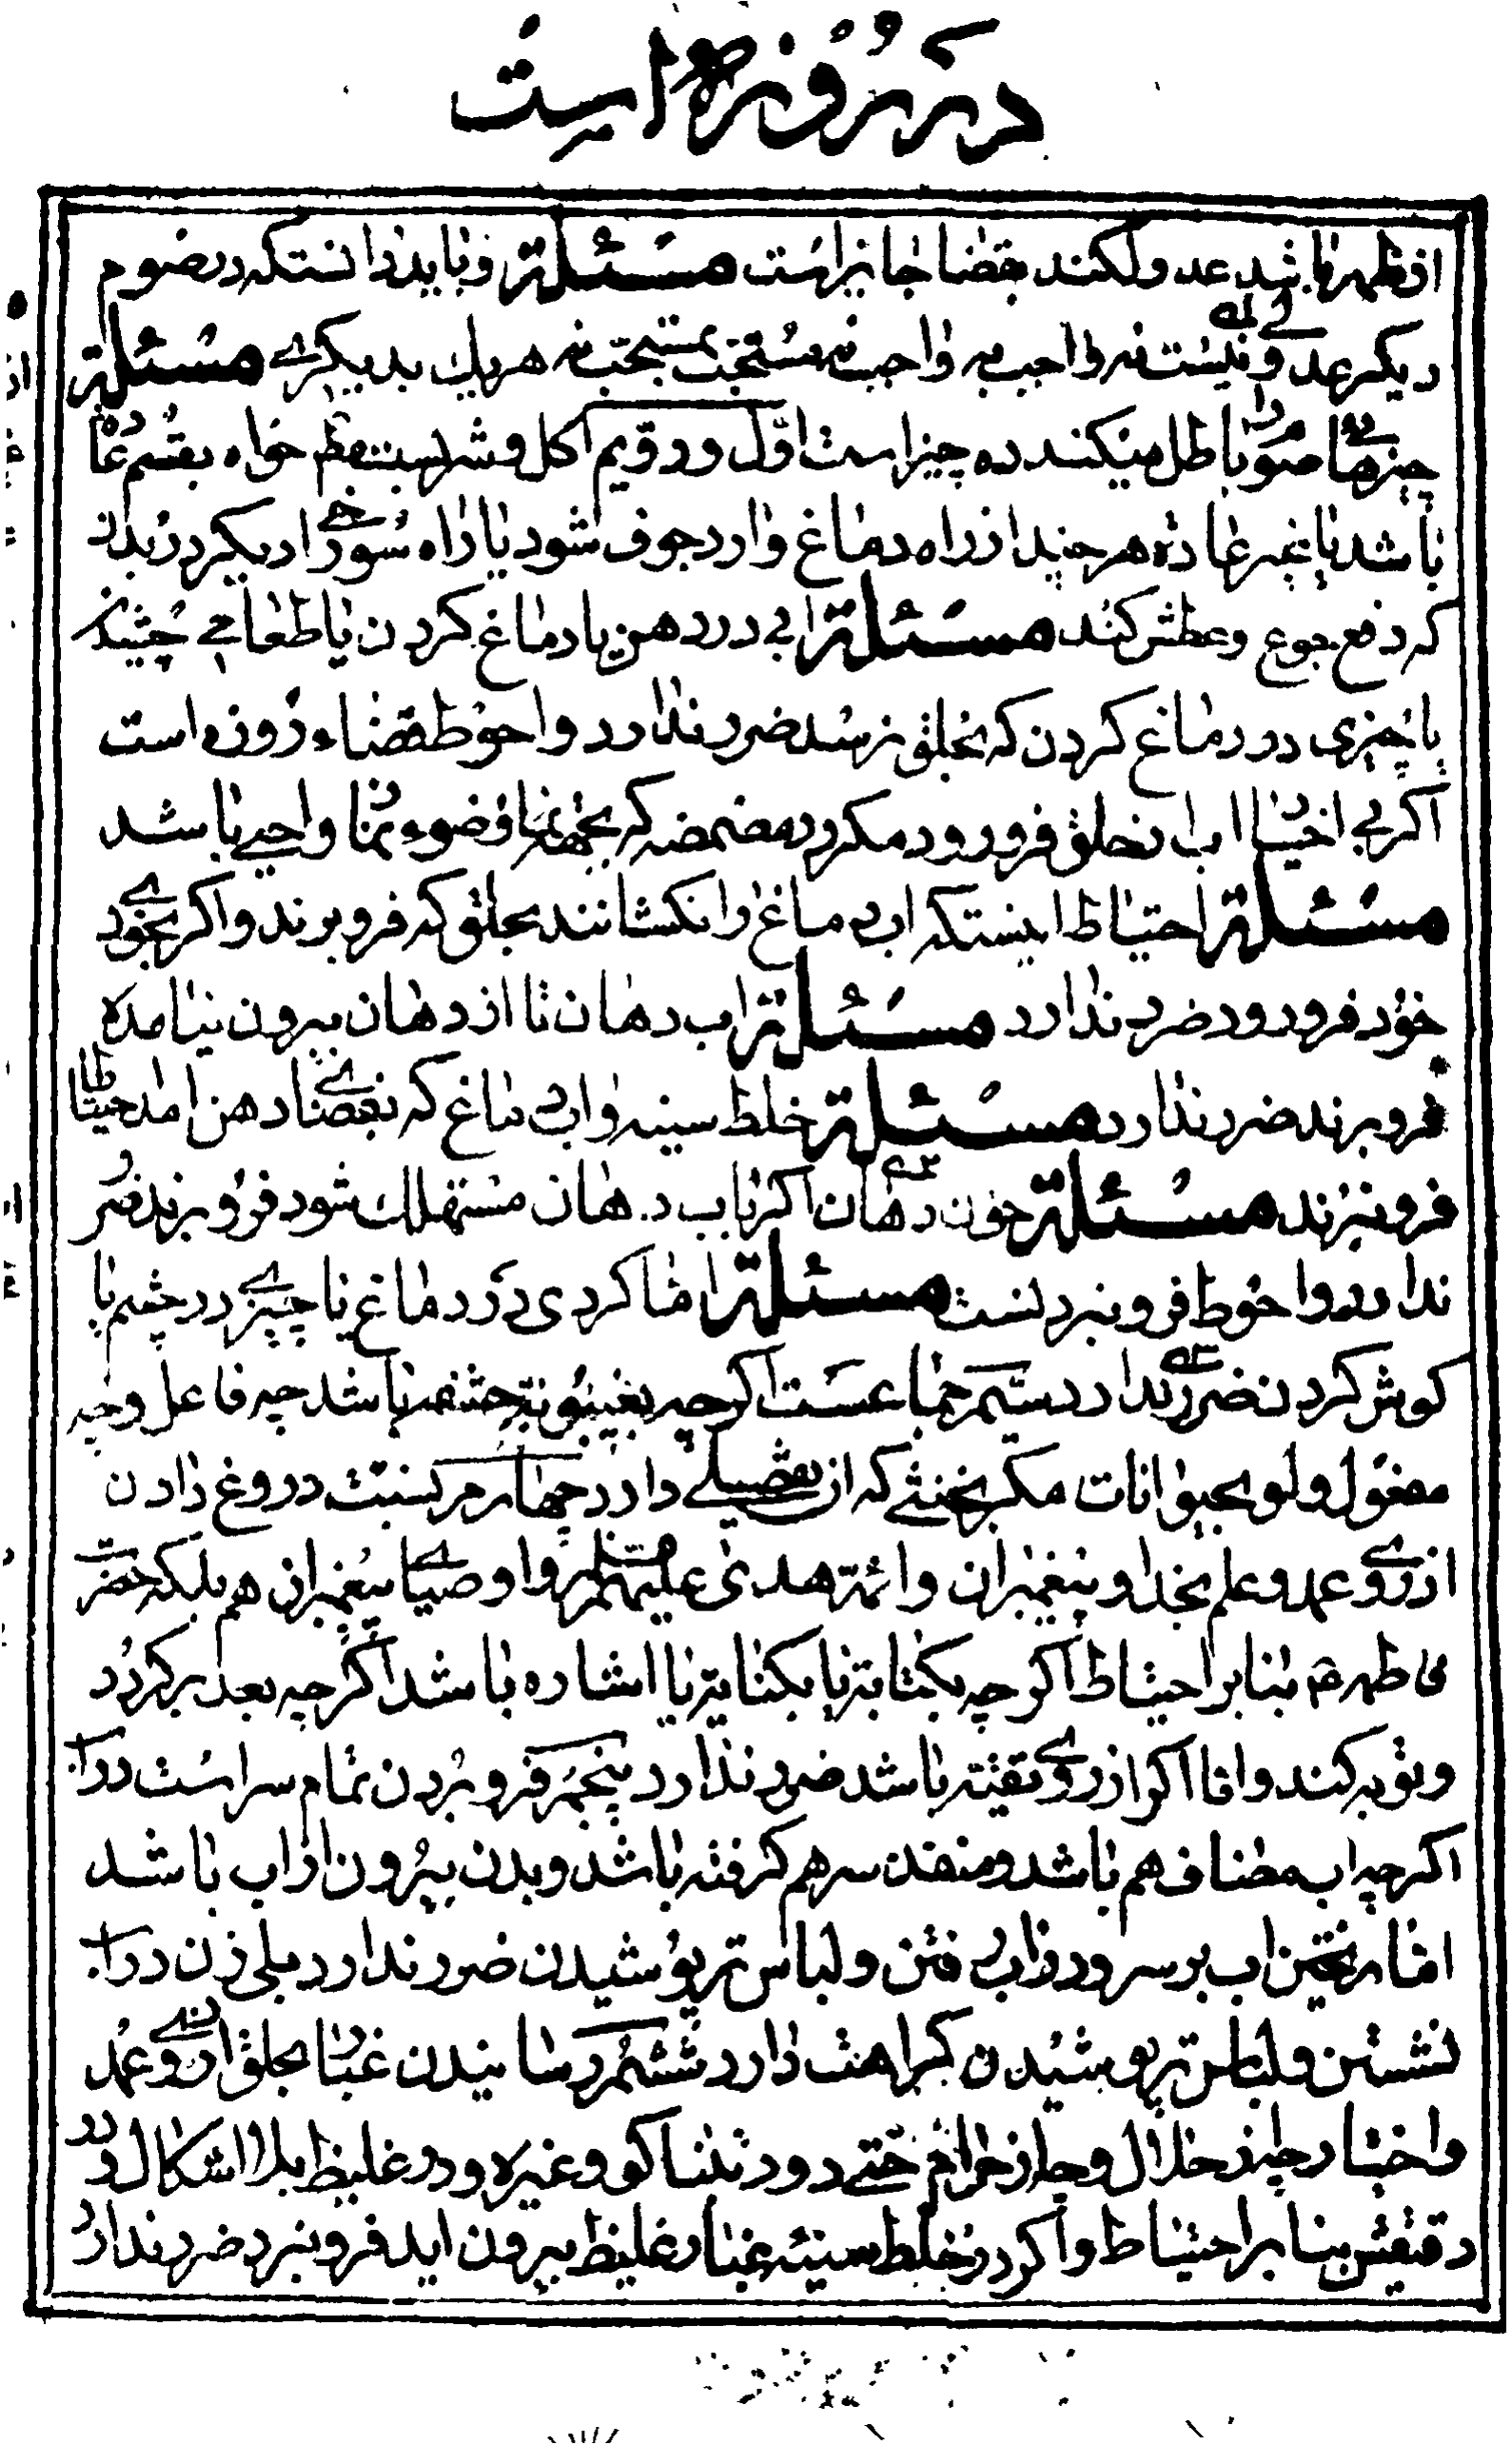 در روزه است
از ظهر باشد عدول کند بقضا جایز است مسئلة و باید دانست که در صوم
دیگر عدولی نیست نه واجب به واجب نه مستحب بمستحب نه هر یک بدیگری مسئلة
چیزهائیکه صوم را باطل میکند ده چیز است اول و دویم اکل و شرب خواه بقسم عادة
باشد یا بغیر عادة هر چند از راه دماغ وارد جوف شود یا از راه سوراخی دیگر در بدن
که دفع جوع و عطش کند مسئلة ابی در دهن یا دماغ کردن یا طعامی چشیدن
یا چیزی در دماغ کردن که بحلق نرسد ضرر ندارد و احوط قضاء روزه است
اکر بی اختیار اب بحلق فرو رود مکر در مضمضه که بجهة وضوء نماز واجبی باشد
مسئلة احتیاط اینستکه اب دماغ را نکشانند بحلق که فرو برند و اکر بخودی
خود فرو رود ضرر ندارد مسئلة اب دهان تا از دهان بیرون نیامده
فرو برند ضرر ندارد مسئلة خلط سینه و اب دماغ که بفضای دهن امد احتیاطا
فرو نبرند مسئلة خون دهان اکر باب دهان مستهلک شود فرو برند ضرر
ندارد و احوط فرو نبردنست مسئلة اما کردی در دماغ یا چیزی در چشم یا
کوش کردن ضرری ندارد سیم جماعست اکر چه بغیبوبة حشفه باشد چه فاعل و چه
مفعول ولو بحیوانات مکر بخنثی که ان تفصیلی دارد چهارم نسبت دروغ دادن
از روی عمد و علم بخدا و پیغمبران و ائمه هدی علیهم السلام و اوصیای پیغمبران هم بلکه حضرت
فاطمه ع بنا بر احتیاط اکر چه بکتابة یا بکنایة یا اشاره باشد اکر چه بعد بر کردد
و توبه کند و اما اکر از روی تقیه باشد ضرر ندارد پنجم فرو بردن تمام سر است در اب
اکر چه اب مضاف هم باشد و منفذ سر هم کرفته باشد و بدن بیرون از اب باشد
اما ریختن اب بر سر و در اب رفتن و لباس تر پوشیدن ضرر ندارد بلی زن در اب
نشستن و لباس تر پوشیدن کراهت دارد ششم رسانیدن غبار بحلق از روی عمد
و اختیار چه از حلال و چه از حرام حتی دود تنباکو و غیره و در غلیظ بلا اشکال و در
دقیقش بنا بر احتیاط و اکر در خلط سینه غبار غلیظ بیرون اید فرو نبرد ضرر ندارد